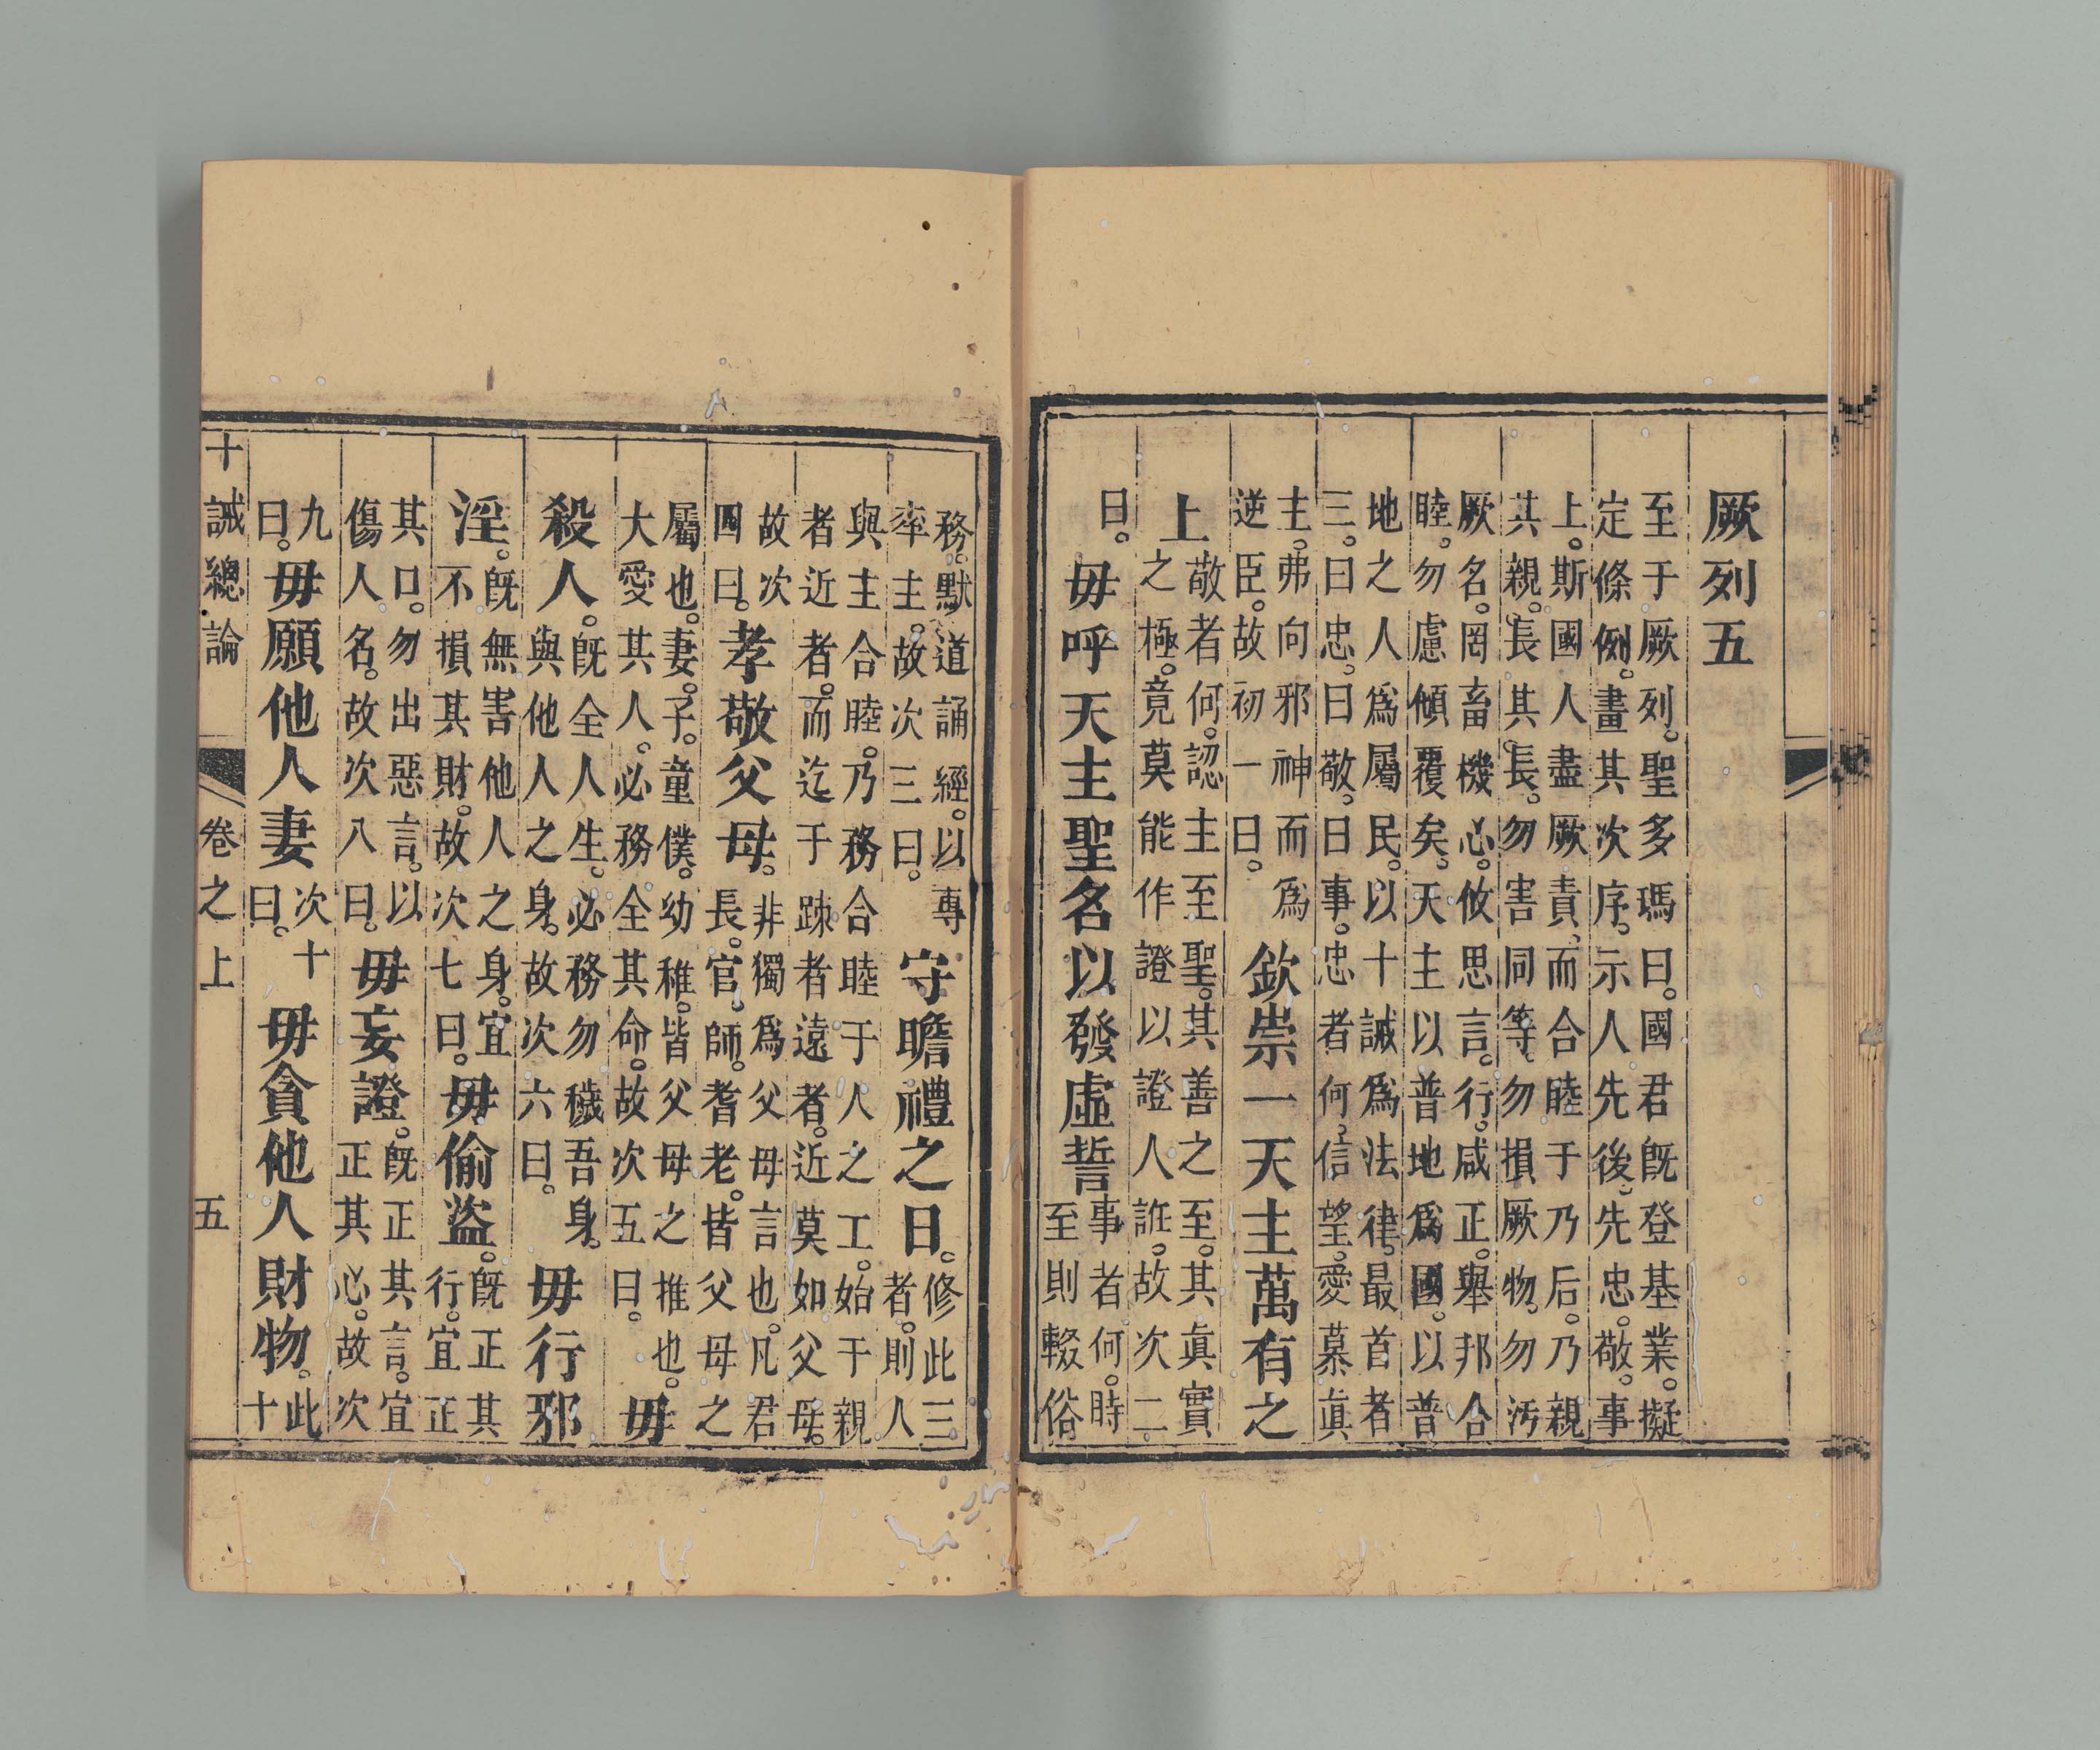 厥列五
至于厥列。聖多瑪曰。國君既登基業。擬
定條例。畫其次序。示人先後。先忠。敬。事
上。斯國人盡厥責。而合睦于乃后。乃親
其親。長其長。勿害同等。勿損厥物。勿汚
厥名。罔畜機心。攸思言。行。咸正。舉邦合
睦。勿慮傾覆矣。天主以普地爲國。以普
地之人爲屬民。以十誡爲法律。最首者
三。曰忠。曰敬。曰事。忠者何。信望。愛慕眞
主。弗向邪神而爲
逆臣。故初一曰。
欽崇一天主萬有之
上
敬者何。認主至聖。其善之至。其眞實
之極。竟莫能作證以證人誑。故次二
曰。
毋呼天主聖名以發虛誓
事者何。時
至則輟俗
務。默道誦經。以專
率主。故次三曰。
守瞻禮之日。
修此三
者。則人
與主合睦。乃務合睦于人之工。始于親
者近者。而迄于踈者遠者。近莫如父母。
故次
四曰。
孝敬父母。
非獨爲父母言也。凡君
長。官。師。耆老。皆父母之
屬也。妻。子。童僕。幼稚。皆父母之推也。
大愛其人。必務全其命。故次五曰。
毋
殺人。
既全人生。必務勿穢吾身。
與他人之身。故次六曰。
毋行邪
淫。
既無害他人之身。宜
不損其財。故次七曰。
毋偷盜。
既正其
行。宜正
其口。勿出惡言。以
傷人名。故次八曰。
毋妄證。
既正其言。宜
正其心。故次
九
曰。
毋願他人妻
次十
曰。
毋貪他人財物。
此
十
十誡總論
卷之上
五